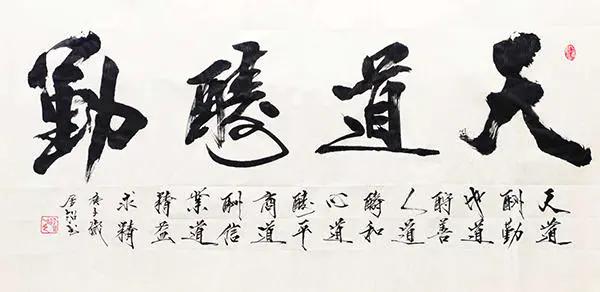 天道酬勤
天道
酬勤
地道
酬善
人道
酬和
心道
酬平
商道
酬信
業道
精益
求精
庚子歲